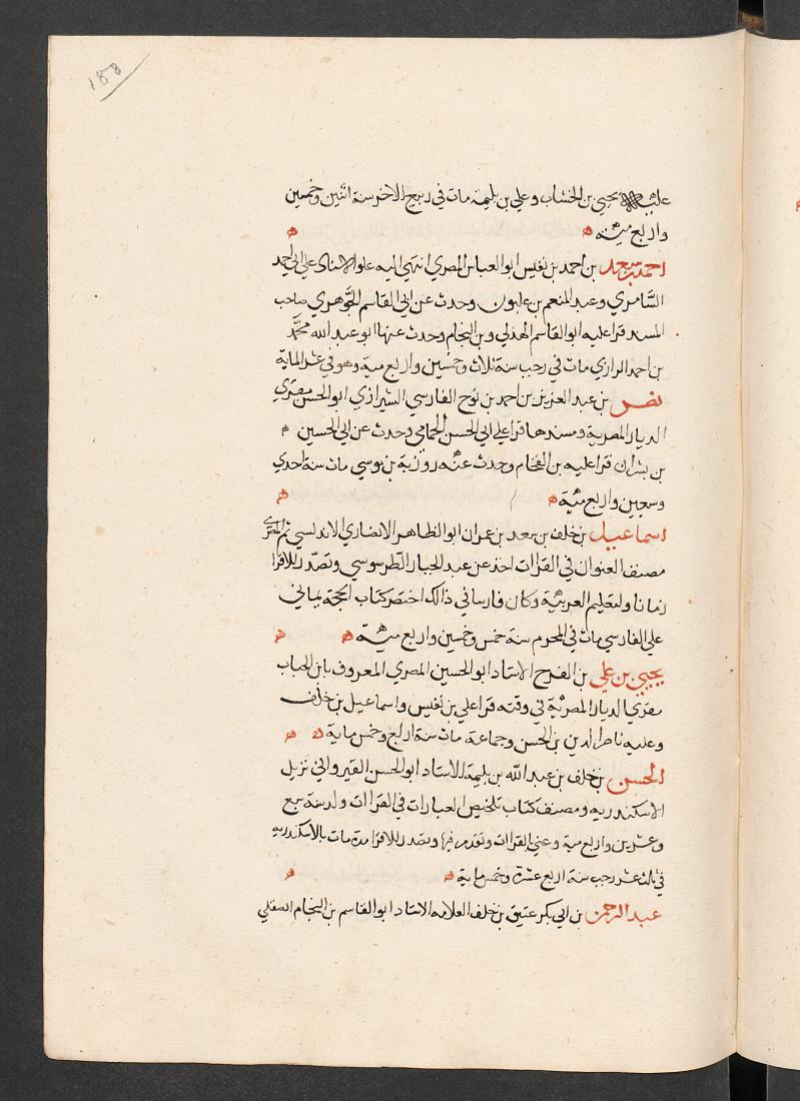 188
عليه يحيى بن الخشاب وعلي بن بليمه مات في ربيع الاخر سنة اثنين وخمسين
واربع مئة
احمد بن سعيد بن احمد بن نفيس ابو العباس المصري انتهى اليه علو الاسناد على ابي احمد
السامري وعبد المنعم بن غلبون وحدث عن ابي القاسم الجوهري صاحب
المسند قرا عليه ابو القاسم الهذلي وبن الفحام وحدث عنها ابو عبد الله محمد
بن احمد الرازي مات في رجب سنة ثلاث وخمسين واربع مية وهو في عشر الماية
نصر بن عبد العزيز بن احمد بن نوح الفارسي الشيرازي ابو الحسن مقري
الديار المصرية ومسندها قرا على ابي الحسن الحمامي وحدث عن ابي الحسين
بن بشران قرا عليه بن الفحام وحدث عنه روزبة بن موسي مات سنة احدي
وسعين واربع مئية
اسماعيل بن خلف بن سعد بن عمران ابو الطاهر الانصاري الاندلسي ثم المصري
مصنف العنوان في القرات اخذ عن عبد الجبار الطرسوسي وتصدر للاقرا
زمانا ولتعليم العربية وكان فارسا في ذالك اختصر كتاب الحجة لابي
علي الفارسي مات في المحرم سنة خمس وخمسين واربع مئية
يحيى بن علي بن الفرج الاستاد ابو الحسين المصري المعروف بابن الخشاب
مقري الديار المصرية في وقته قرا علي بن نفيس واسماعيل بن خلف
وعليه ناصر الدين بن الحسن وجماعة مات سنة اربع وخمس ماية
الحسن بن خلف بن عبد الله بن بليمة الاستاد ابو الحسن القيرواني نزيل
الاسكندريه ومصنف كتاب تلخيص العبارات في القراات ولد سنة سبع
وعشرين واربع مية وعني القراات وتقدم فيها وتصدر للاقرا مدة مات بالاسكندريه
في ثالث عشر رجب سنة اربع عشرة وخمس ماية
عبد الرحمن بن ابي بكر عتيق بن خلف العلامه الاستاد ابو القاسم بن الفحام الصقلي